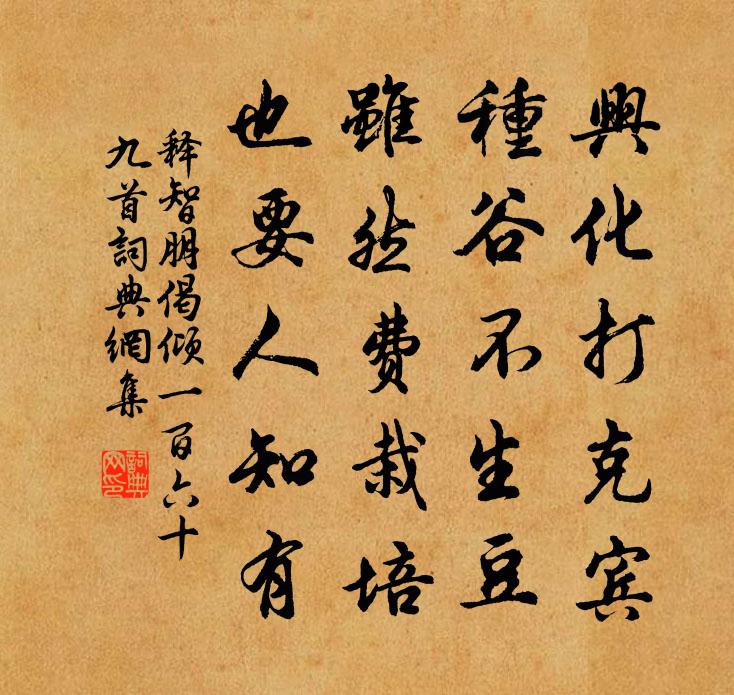 興化打克宾
種谷不生豆
雖然費栽培
也要人知有
释智朋偈倾一百六十
九首詞典網集
詞典
网印